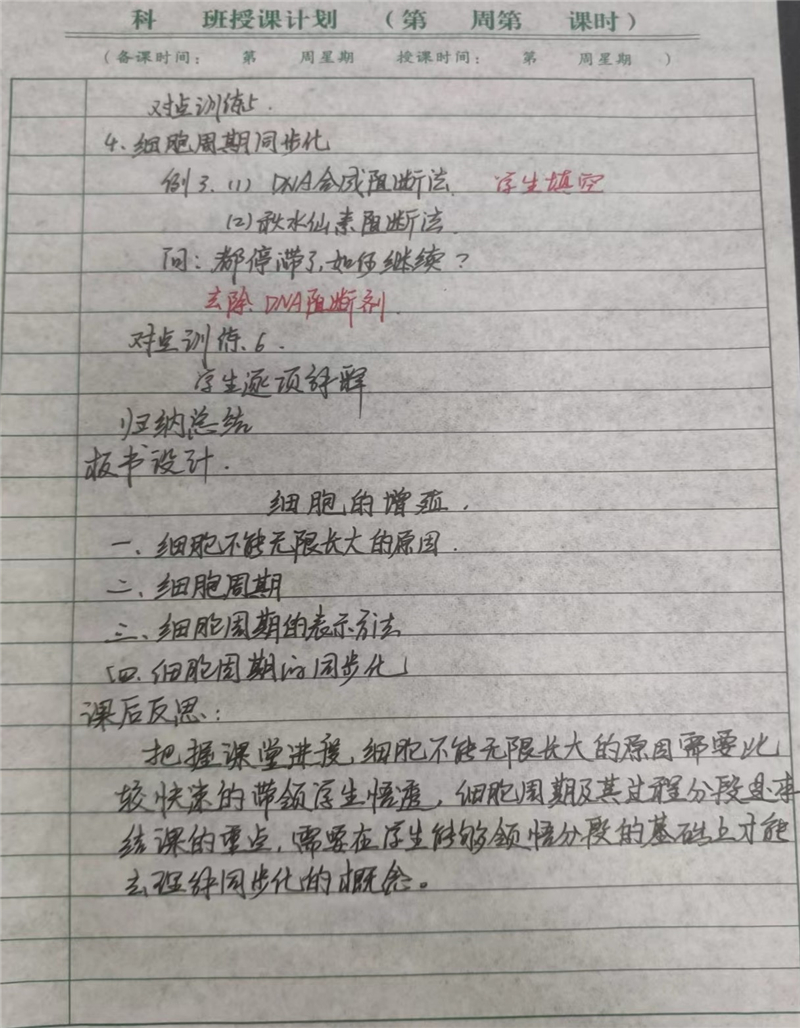 科 班授课计划 (第 周第 课时)
(备课时间: 第 周星期 授课时间: 第 周星期 )
对点训练5.
4、细胞周期同步化
例3.(1) DNA合成阻断法. 学生填空
(2)秋水仙素阻断法.
问:都停滞了,如何继续?
去除DNA阻断剂.
对点训练6.
学生逐项纾解
归纳总结
板书设计.
细胞的增殖.
一、细胞不能无限长大的原因.
二、细胞周期
三、细胞周期的表示方法
四.细胞周期的同步化
课后反思:
把握课堂进程,细胞不能无限长大的原因需要比
较快速的带领学生悟,细胞周期及其过程分段是本
结课的重点,需要在学生能够领悟分段的基础上才能
去理解同步化的概念。